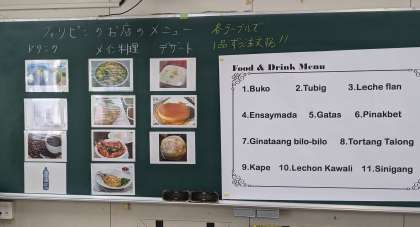 フィリピンのお店のメニュー
各テーブルで
1品ずつ注文だ!!
ドリンク メイン料理 デザート
Food & Drink Menu
1.Buko 2.Tubig 3.Leche flan
4.Ensaymada 5.Gatas 6.Pinakbet
7.Ginataang bilo-bilo 8.Tortang Talong
9.Kape 10.Lechon Kawali 11.Sinigang